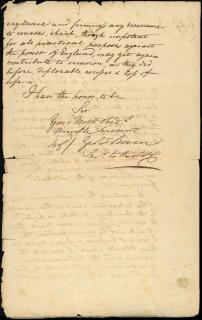 vigilance and firmness any recurrence
to courses, which, though impotent
for all practical purposes against
the power of England, may yet again
contribute to as they did
before deplorable escapes & loss of
life.
I have the honor to be
Sir
Your Most Obdt
Humble Servant